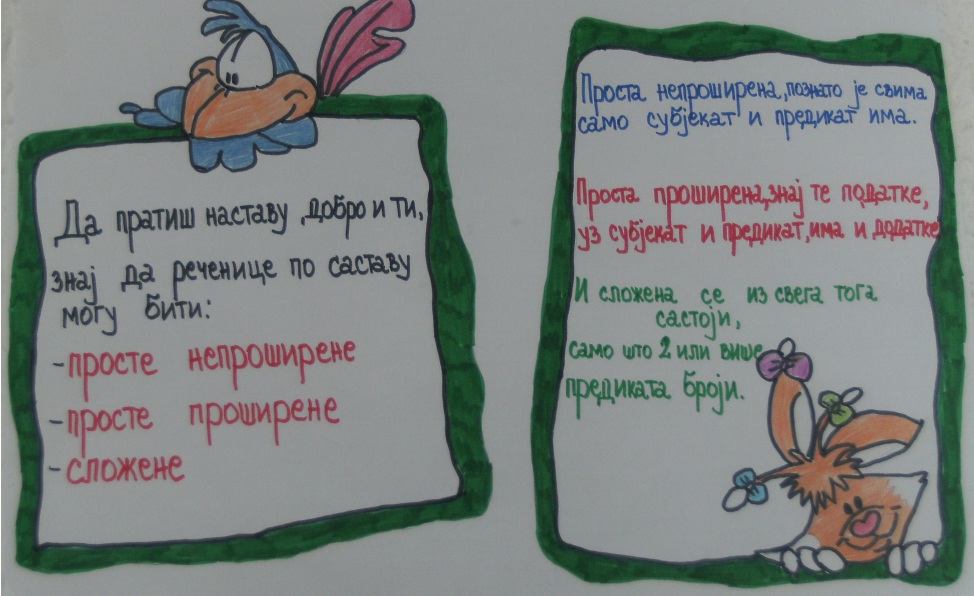 Да пратиш наставу добро и ти,
знај да реченице по саставу
могу бити:
-просте непроширене
-просте проширене
-сложене
Проста непроширена, познато је свима
само субјекат и предикат има.
Проста проширена, знај те податке,
уз субјекат и предикат, има и додатке
И сложена се из свега тога
састоји,
само што 2 или више
предиката броји.